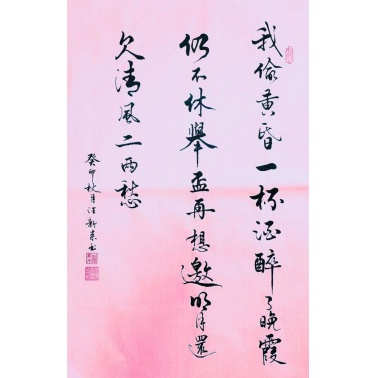 我偷黄昏一杯酒醉了晚霞
仍不休舉盃再想邀明月還
欠清風二两愁
癸卯秋月汪新来书